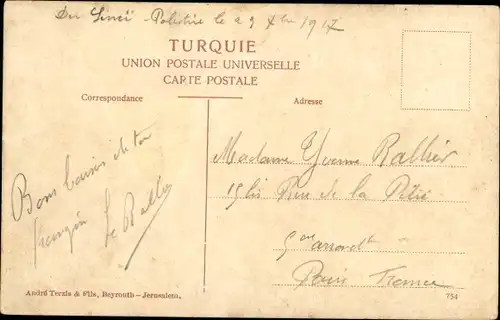 Du Sinaï - Palestine le 29 Xbre 1917
TURQUIE
UNION POSTALE UNIVERSELLE
CARTE POSTALE
Correspondance
Adresse
Madame Yvonne Rallier
15 bis Rue de la Pitié
5eme arrondt
Paris France
Bons baisers de ton
frangin
André Terzis & Fils, Beyrouth—Jerusalem.
754